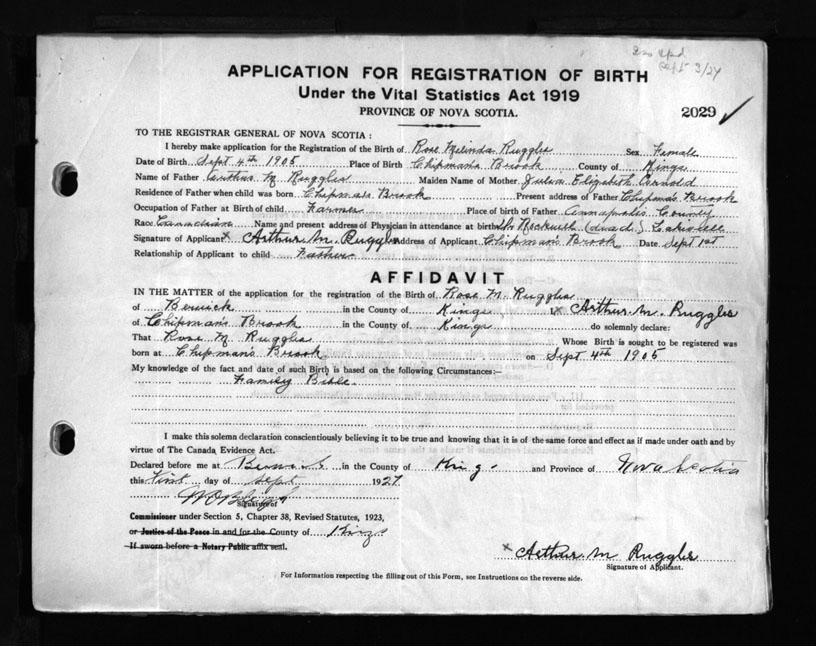 Sept 3/27
APPLICATION FOR REGISTRATION OF BIRTH
Under the Vital Statistics Act 1919
PROVINCE OF NOVA SCOTIA.
2029
TO THE REGISTRAR GENERAL OF NOVA SCOTIA:
I hereby make application for the Registration of the Birth of Rose Melinda Ruggles Sex Female
Date of Birth Sept 4th 1905 Place of Birth Chipmans Brook County of Kings
Name of Father Arthur M Ruggles Maiden Name of Mother Julia Elizabeth Arnold
Residence of Father when child was born Chipmans Brook Present address of Father Chipmans Brook
Occupation of Father at Birth of child Farmer Place of birth of Father Annapolis County
Race Canadian Name and present address of Physician in attendance at birth Dr. (dead)
Signature of Applicant x Arthur M. Ruggles Address of Applicant Chipman's Brook Date Sept 1st
Relationship of Applicant to child Father
AFFIDAVIT
IN THE MATTER of the application for the registration of the Birth of Rose M. Ruggles
of Berwick in the County of Kings I x Arthur M. Ruggles
of Chipman's Brook in the County of Kings do solemnly declare:
That Rose M. Ruggles Whose Birth is sought to be registered was
born at Chipman's Brook on Sept 4th 1905
My knowledge of the fact and date of such Birth is based on the following Circumstances:—
Family Bible
I make this solemn declaration conscientiously believing it to be true and knowing that it is of the same force and effect as if made under oath and by
virtue of The Canada Evidence Act.
Declared before me at Berwick in the County of Kings and Province of Nova Scotia
this First day of Sept 1927
Signature of
Commissioner under Section 5, Chapter 38, Revised Statutes, 1923,
or Justice of the Peace in and for the County of Kings
If sworn before a Notary Public affix seal.
x Arthur M Ruggles
Signature of Applicant.
For Information respecting the filling out of this Form, see Instructions on the reverse side.